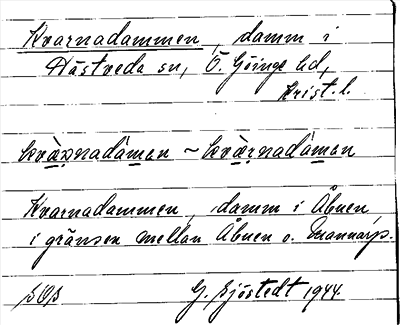 Kvarnadammen, damm i
Hästveda sn, Ö. Göinge hd,
Krist. l.
kvànadàmen ~ kvæ̀rnadàmen
Kvarnadammen, damm i Åbuen,
i gränsen mellan Åbuen o. Mannarp.
G. Sjöstedt 1944.